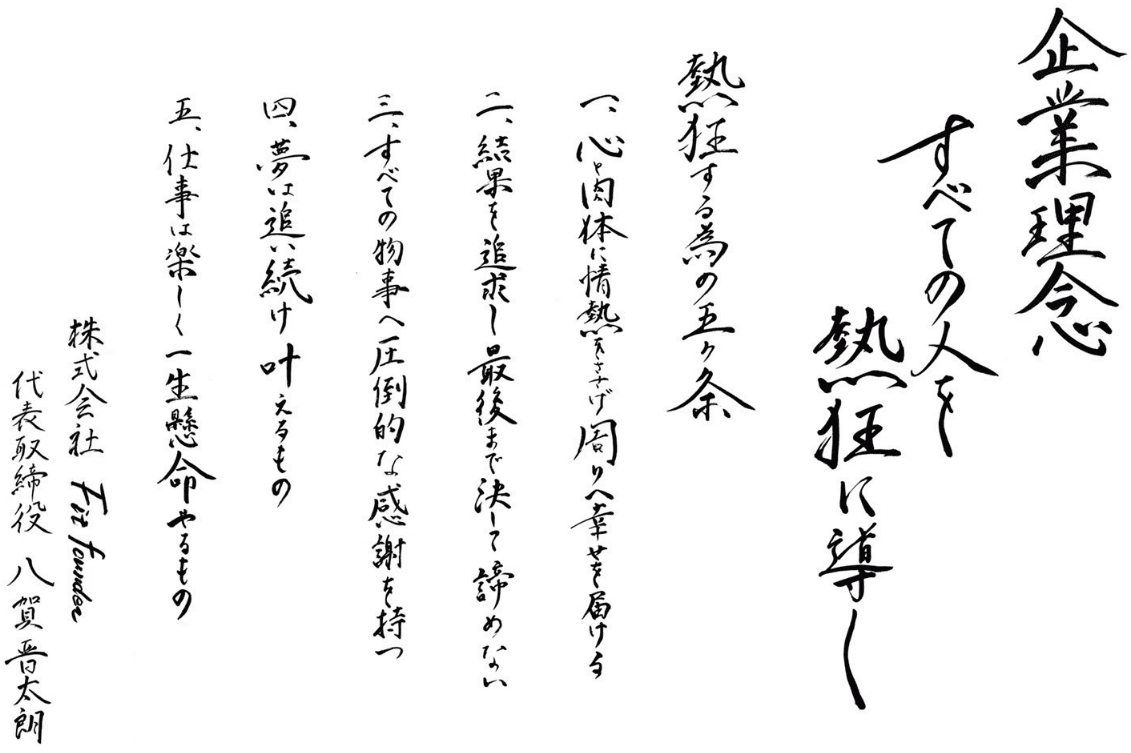 企業理念
すべての人を
熱狂に導し
熱狂する為の五ヶ条
一、心と肉体に情熱をささげ周りへ幸せを届ける
二、結果を追求し最後まで決して諦めない
三、すべての物事へ圧倒的な感謝を持つ
四、夢は追い続け叶えるもの
五、仕事は楽しく一生懸命やるもの
株式会社 Fit founder
代表取締役 八賀晋太朗